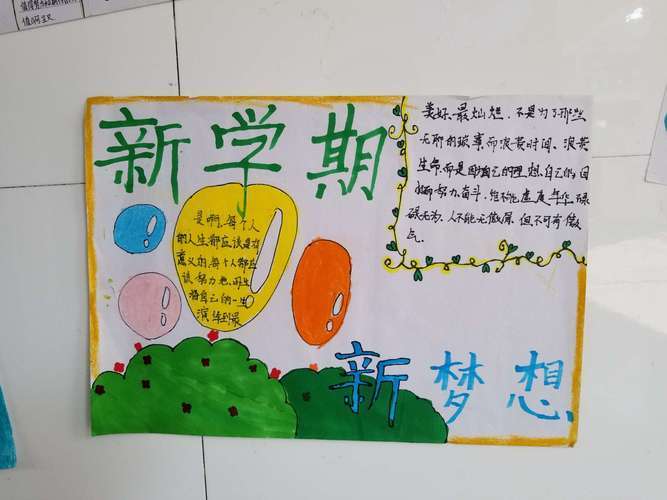 新学期
是啊，每个人
的人生都应该是有
意义的，每个人都应
该努力地，而生
将自己的一生
演绎到最
美好、最灿烂，不是为了那些
无所的琐事而浪费时间、浪费
生命，而是因自己的理想、自己的目
标努力奋斗，绝不能虚度年华，碌
碌无为，人不能无傲骨，但不可有傲
气。
新梦想